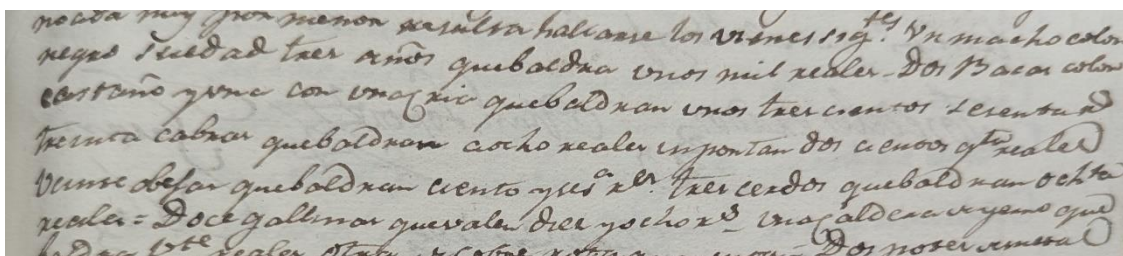 nocida muy por menor resulta hallarse los vienes sigtes Un macho color
negro su edad tres años quebaldra unos mil reales - Dos Bacas color
castaño y una con una cria quebaldran unos trescientos sesenta rs
treinta cabras quebaldran a ocho reales ynportan dos cientos qta reales
veinte obejas quebaldran ciento y ses.a rs tres cerdos quebaldran ochta
reales = Doce gallinas que valen diez y ocho rs una caldera que
baldra vte reales otra cobre Dos